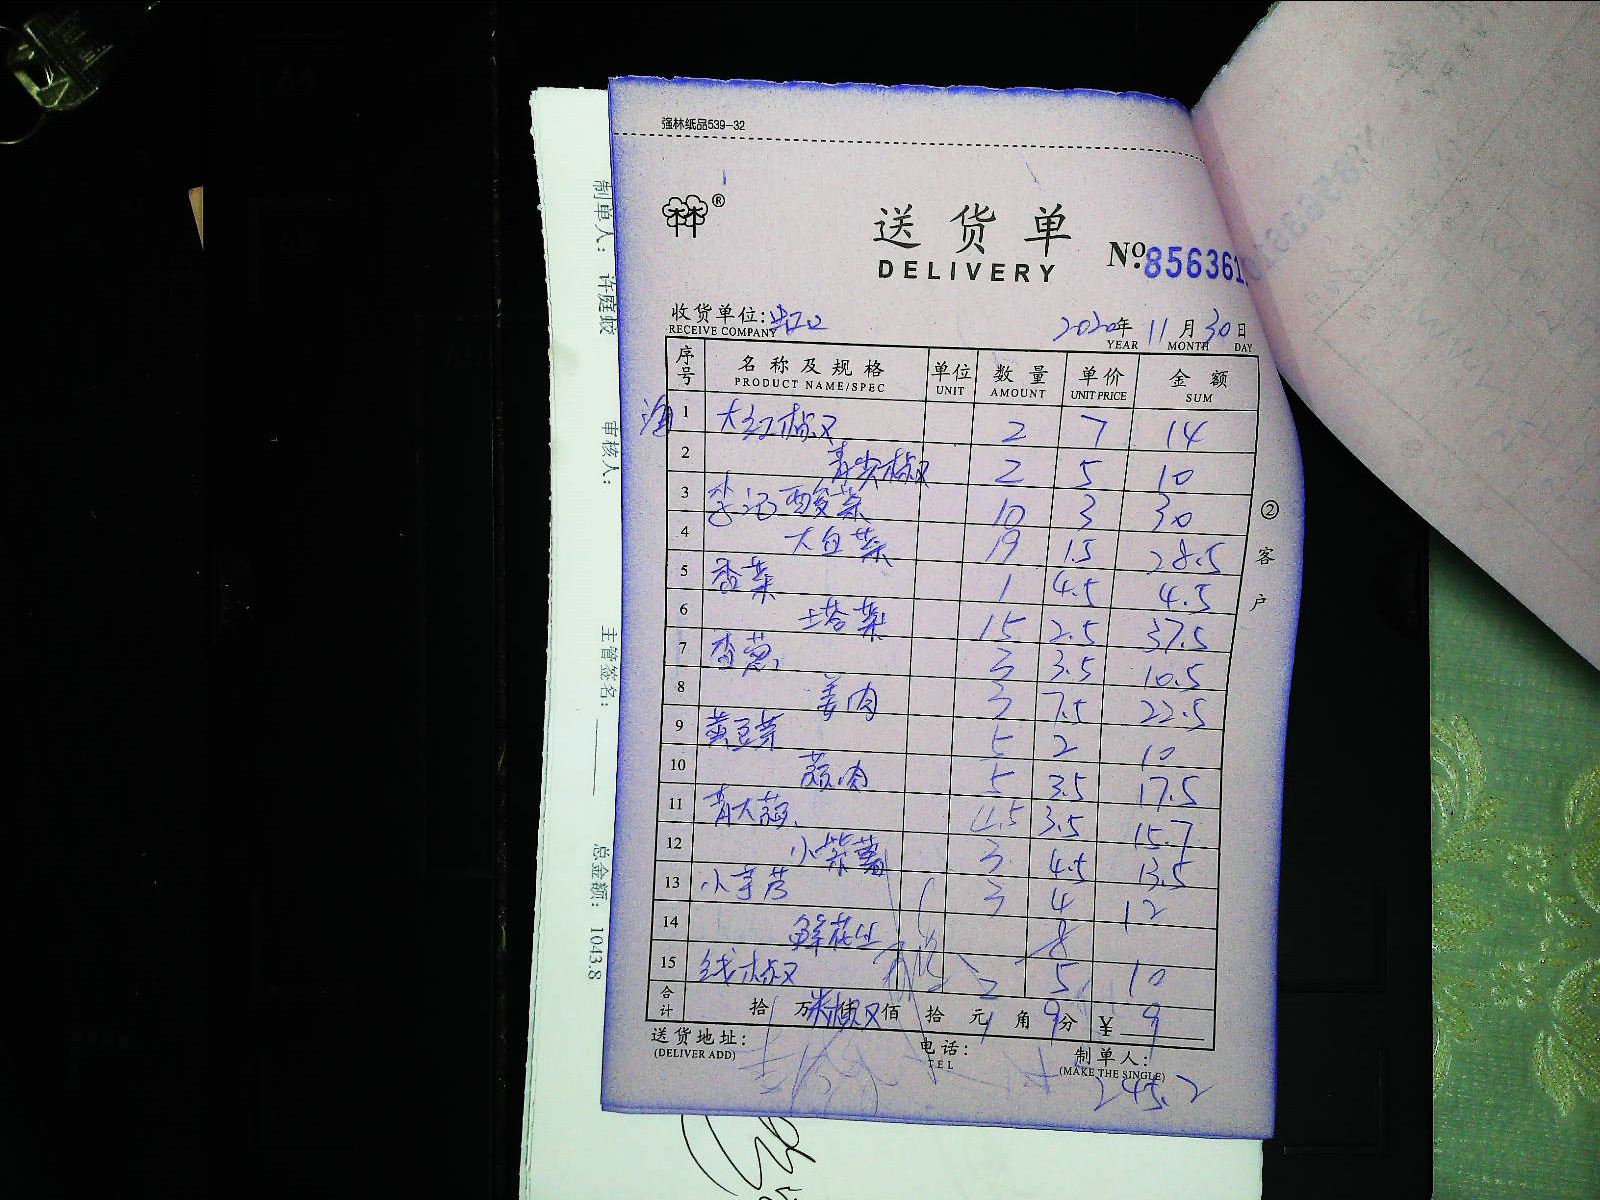 强林纸品539-32
林林®
送货单
DELIVERY
№:856361
收货单位:
RECEIVE COMPANY
2020年 11月30日
YEAR MONTH DAY
序号 名称及规格 单位 数量 单价 金额
PRODUCT NAME/SPEC UNIT AMOUNT UNIT PRICE SUM
1 大红椒 2 7 14
2 青尖椒 2 5 10
3 李记酸菜 10 3 30
4 大白菜 19 1.5 28.5
5 香菜 1 4.5 4.5
6 塔菜 15 2.5 37.5
7 香葱 3 3.5 10.5
8 姜肉 3 7.5 22.5
9 黄豆芽 5 2 10
10 蒜肉 5 3.5 17.5
11 青大蒜 4.5 3.5 15.7
12 小紫薯 3 4.5 13.5
13 小芋艿 3 4 12
14 鲜花生 8
15 线椒 2 5 10
合计 拾 万 米椒 佰 拾 元 1 角 9 分 ¥ 9
送货地址:
(DELIVER ADD)
电话:
TEL
制单人:
(MAKE THE SINGLE)
245.2
②客户
制单人: 许庭蛟
审核人:
主管签名:
总金额: 1043.8